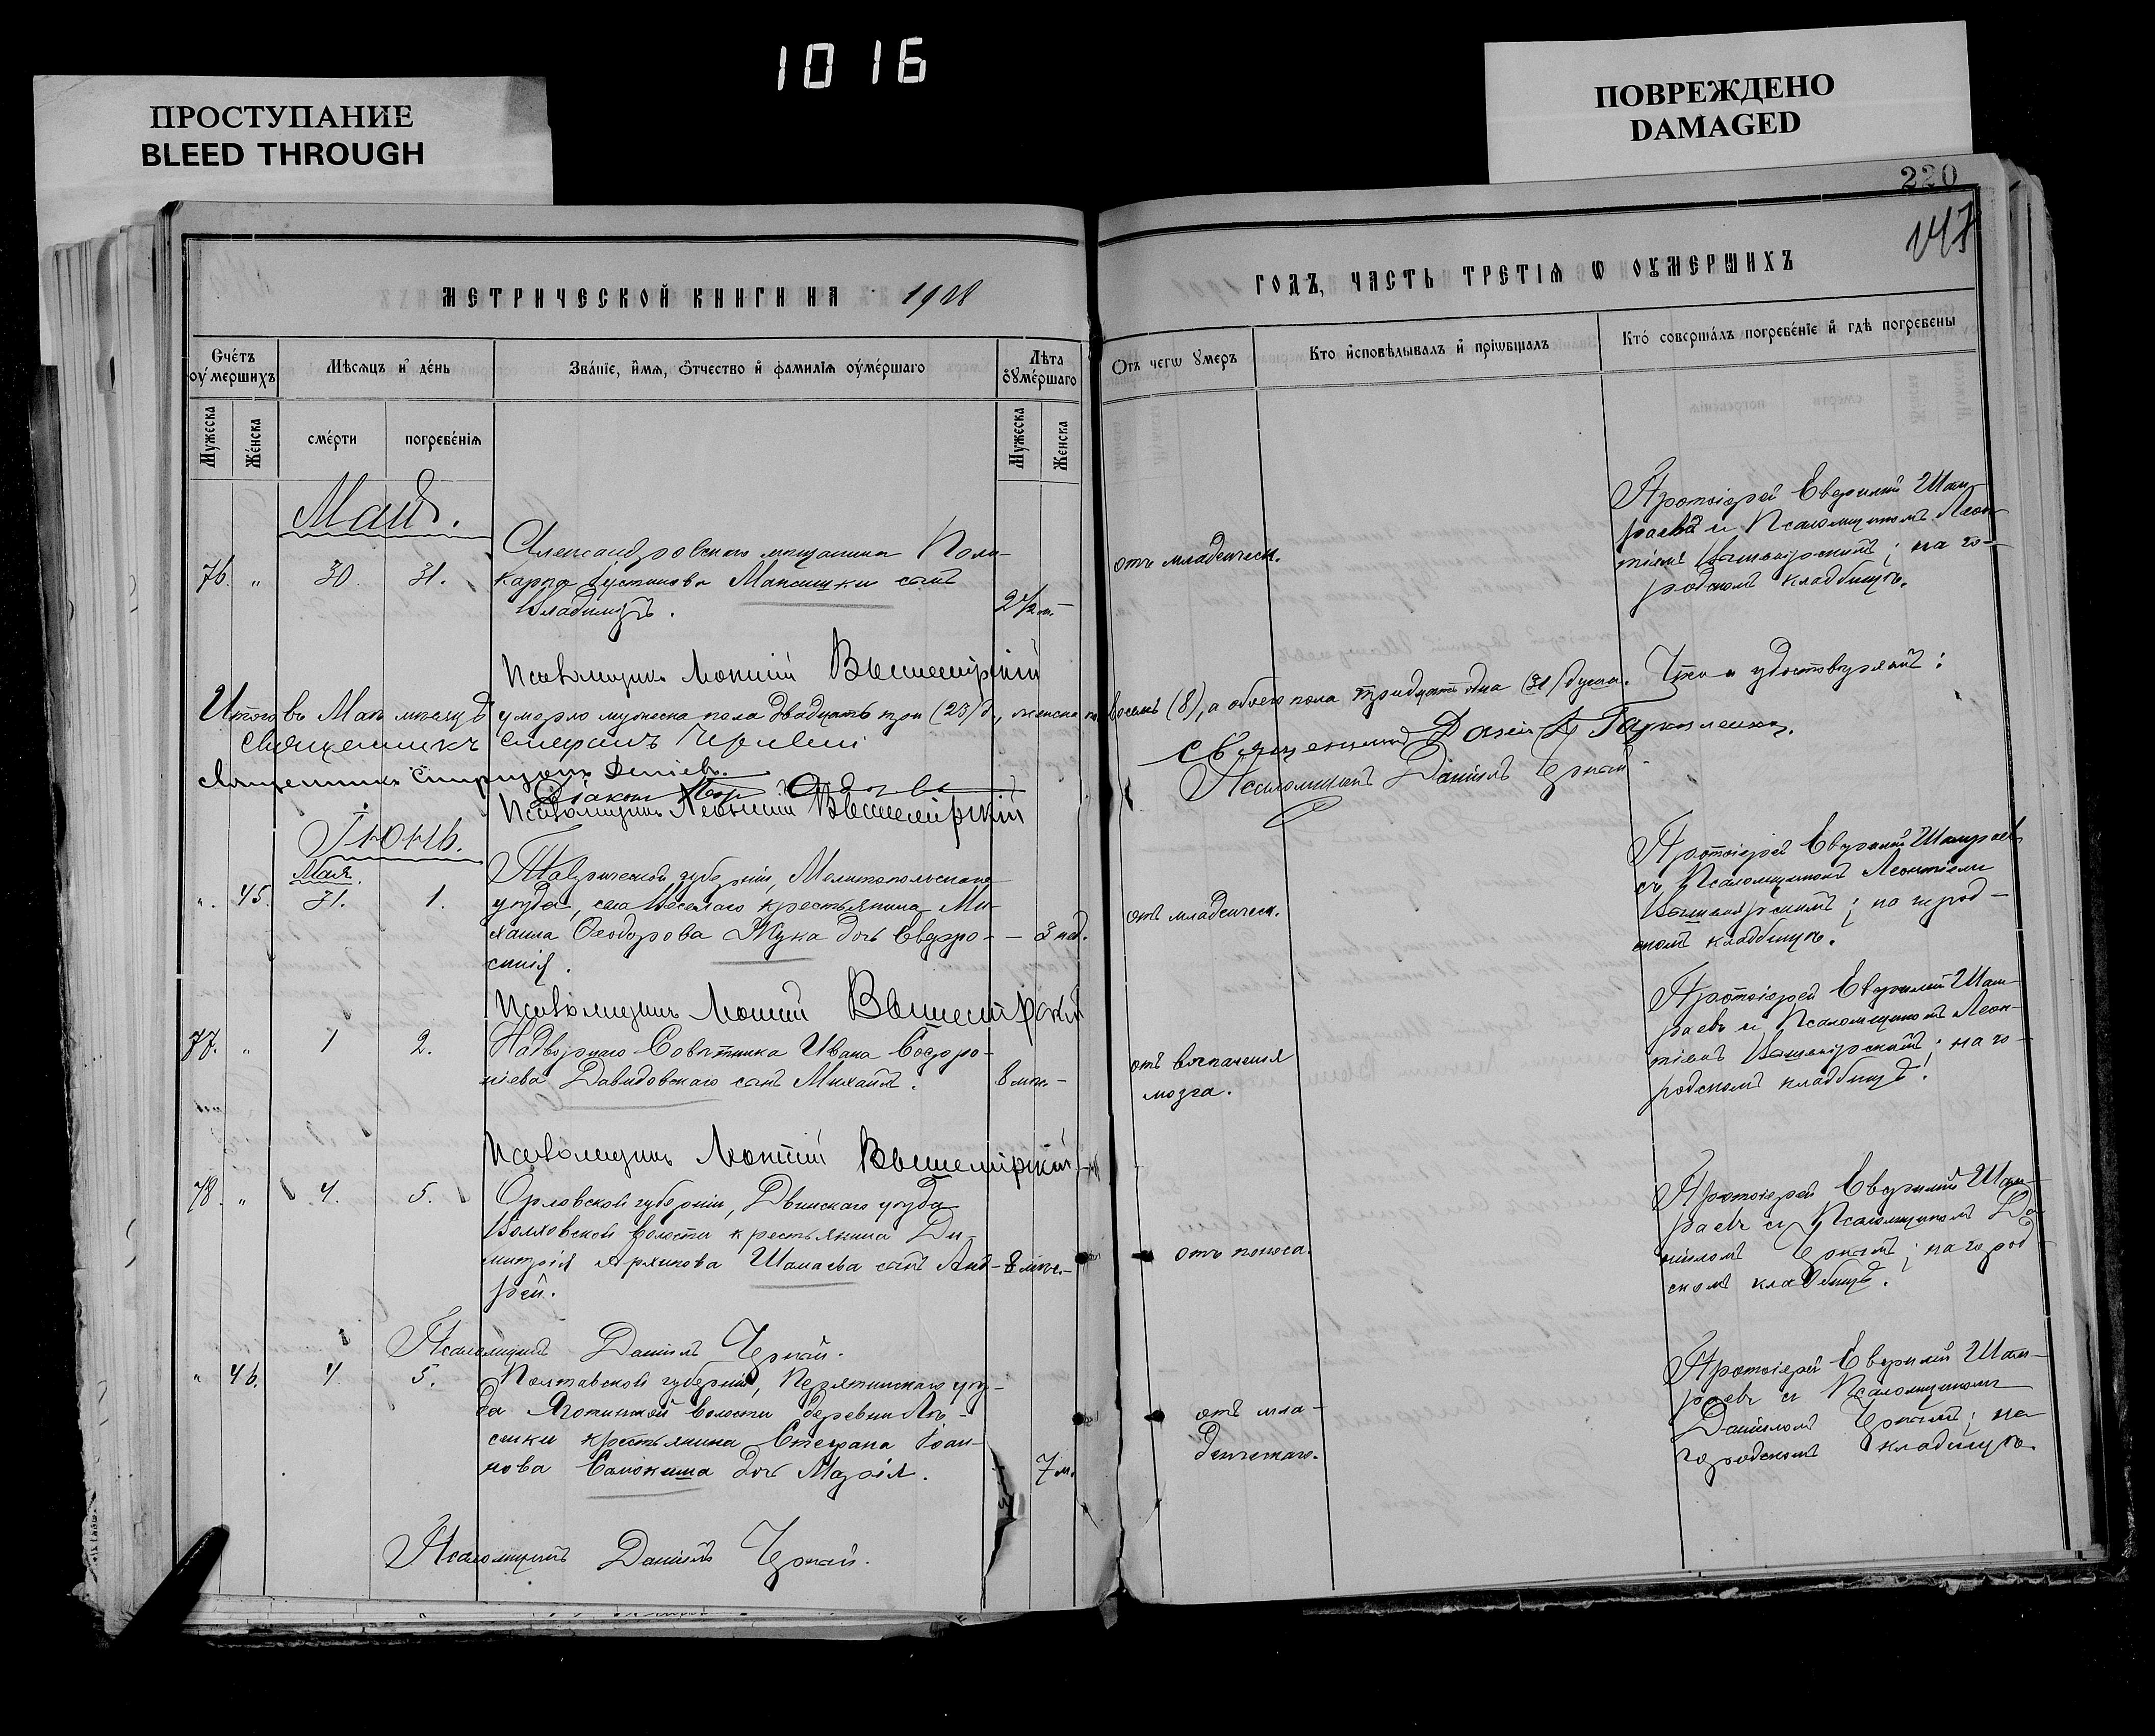 1016
ПРОСТУПАНИЕ
BLEED THROUGH
ПОВРЕЖДЕНО
DAMAGED
220
147
МЕТРИЧЕСКОЙ КНИГИ НА 1908
ГОДЪ, ЧАСТЬ ТРЕТІѦ Ѡ ОУМЕРШИХЪ
Счéтъ оумершихъ
Мѣсяцъ и дéнь
Звáнїе, и́мѧ, ѻ́тчество и фамилїѧ оумéршагѡ
Лѣта оумéршагѡ
Мужеска
Жéнска
смéрти
погребéнїѧ
Мужеска
Женска
Отъ чегѡ умеръ
Кто исповѣдывалъ и прїѡбщалъ
Ктó совершáлъ погребéнїе и гдѣ погребены
Май.
76. " 30. 31.
Александровскаго мещанина Поли-
карпа Іустинова Максишки сынъ
Владимиръ.
отъ младенческ.
Протоіерей Евфимий Шам-
раевъ и Псаломщикомъ Леон-
тіемъ ; на го-
родскомъ кладбищѣ.
Псаломщикъ Леонтій Вышемірскій
Итого въ Маѣ мѣсяцѣ умерло мужеска пола двадцать три (23) д., женска п. восемь (8), а обоего пола тридцать одна (31) душа. Что и удостовѣряютъ:
Священникъ Стефанъ
Священникъ
Діаконъ
Псаломщикъ Леонтій Вышемірскій
Священникъ
Псаломщикъ Даниілъ Чернай
Іюнь.
Мая.
". 45. 31. 1.
Таврической губерніи, Мелитопольскаго
уѣзда, села Веселаго крестьянина Ми-
хаила Ѳеодорова Жука дочь Евфро-
синія.
3 нед.
отъ младенческ.
Протоіерей Евфимий Шамраевъ
съ Псаломщикомъ Леонтіемъ
Вышемірскимъ; на город-
скомъ кладбищѣ.
Псаломщикъ Леонтій Вышемірскій
77. " 1 2.
Надворнаго Совѣтника Ивана Софро-
ніева Давидовскаго сынъ Михаилъ.
8 мѣс.
отъ воспаленія
мозга.
Протоіерей Евфимий Шам-
раевъ и Псаломщикомъ Леон-
тіемъ Вышемірскимъ; на го-
родскомъ кладбищѣ.
Псаломщикъ Леонтій Вышемірскій
78. " 4. 5.
Орловской губерніи, уѣзда
волости крестьянина Ди-
митрія Шамаева сынъ Анд-
рей.
8 мѣс.
отъ поноса.
Протоіерей Евфимий Шам-
раевъ съ Псаломщикомъ Да-
ніиломъ Чернаемъ; на город-
скомъ кладбищѣ.
Псаломщикъ Даниілъ Чернай.
" 46. 4. 5.
Полтавской губерніи, Пирятинскаго уѣз-
да Яготинской волости деревни Лѣ-
сяки крестьянина Стефана Іоан-
нова дочь Марія.
7 м.
отъ мла-
денческаго.
Протоіерей Евфимий Шам-
раевъ и Псаломщикомъ
Даніиломъ Чернаемъ; на
городскомъ кладбищѣ.
Псаломщикъ Даниілъ Чернай.